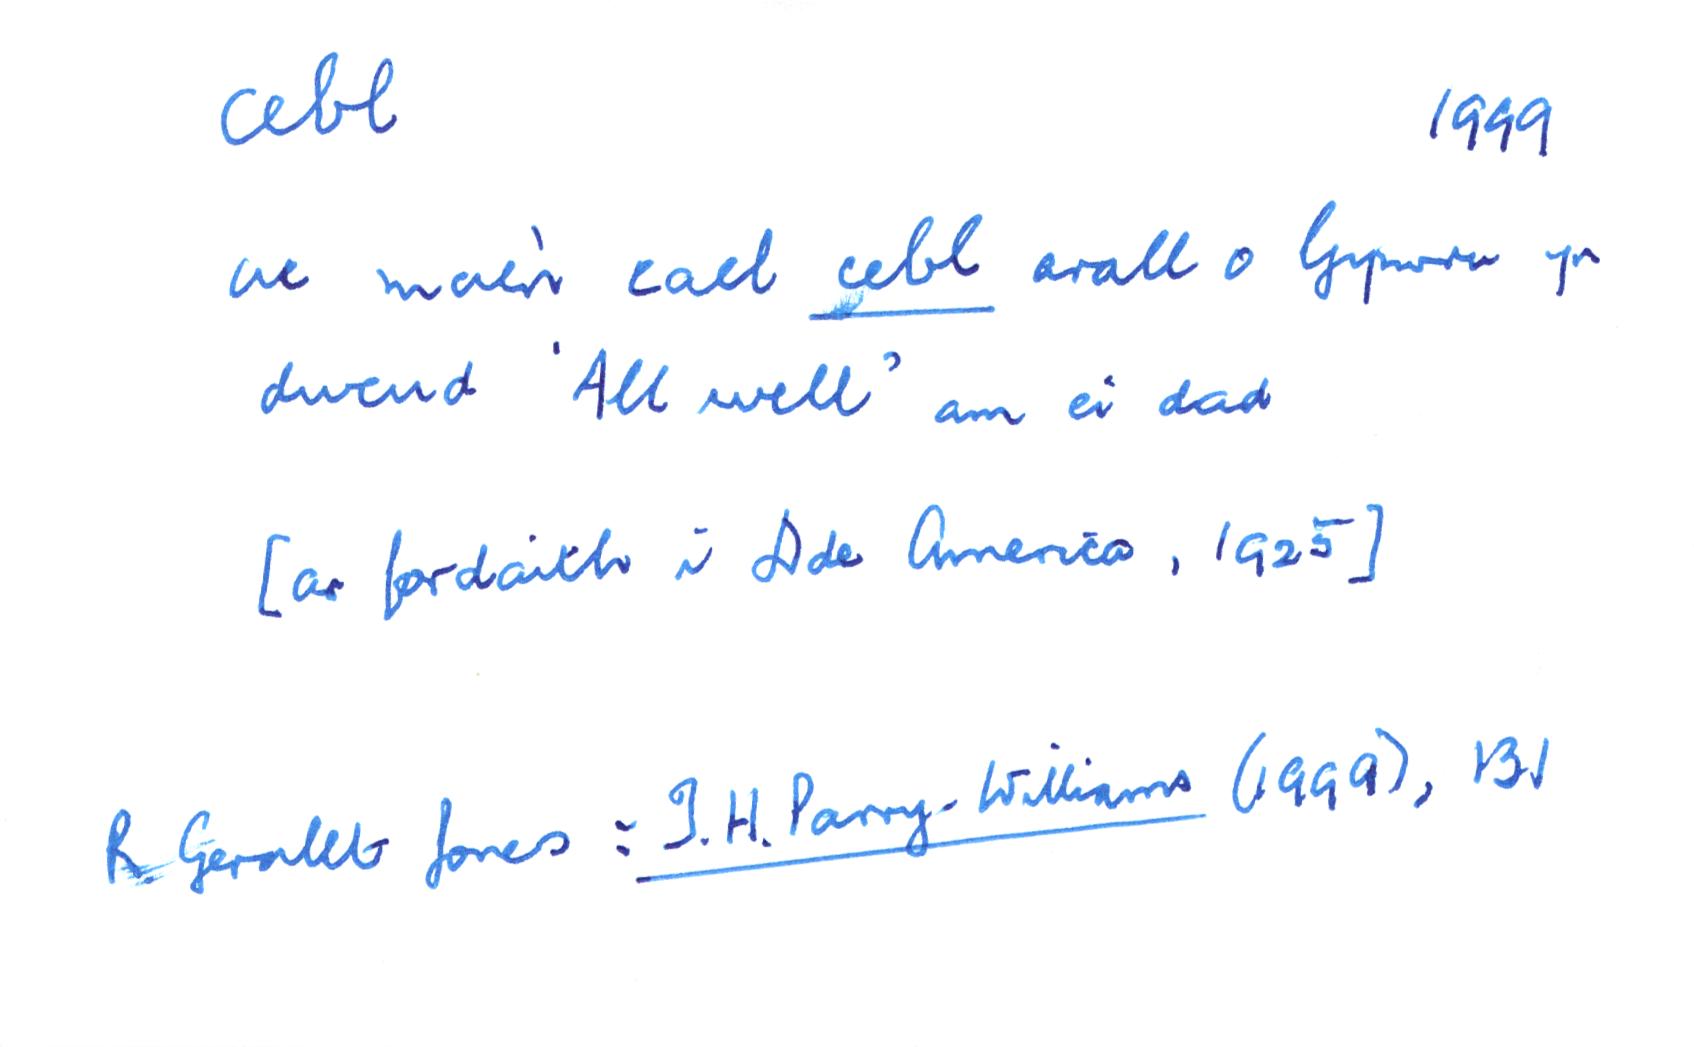 cebl 1999
ac mae'n cael cebl arall o Gymru yn
dweud 'All well' am ei dad
[ar fordaith i Dde America, 1925]
R. Gerallt Jones : T.H. Parry-Williams (1999), 131